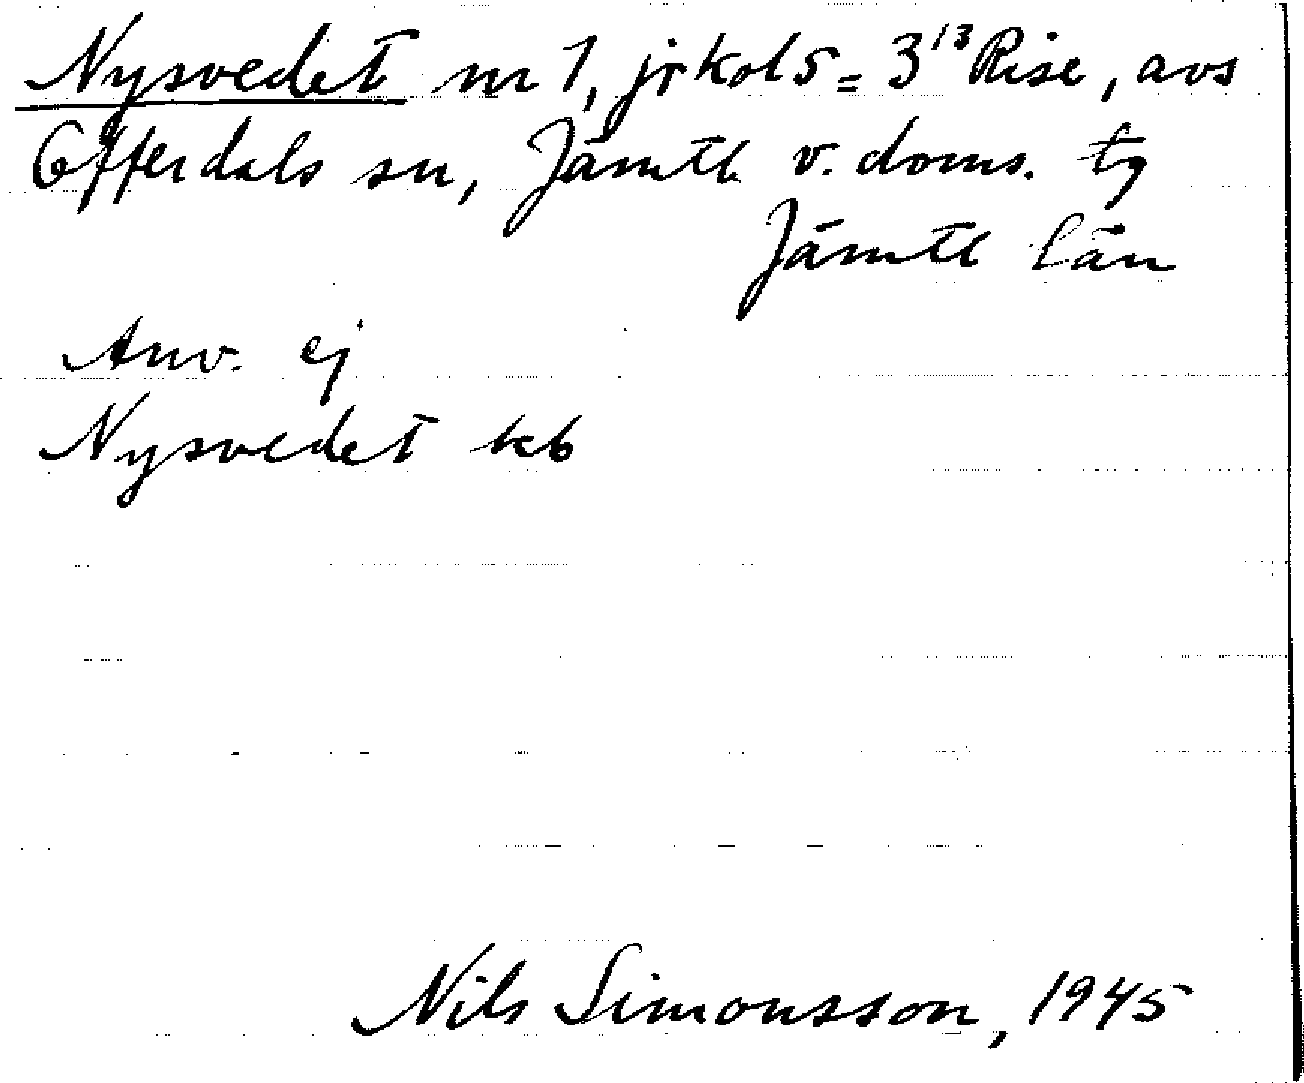 Nysvedet nr 1, jrkol 5 = 3¹³ Rise, avs
Offerdals sn, Jämtl. v. doms. tg
Jämtl län
Anv. ej
Nysvedet kb
Nils Simonsson, 1945